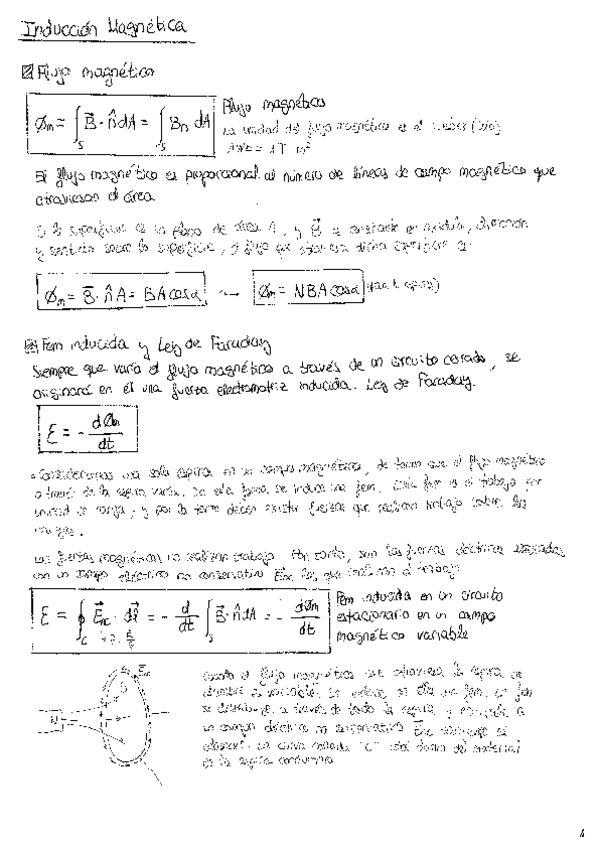 Inducción Magnética
Flujo magnético
Øm = ∫s B⃗ · n̂ dA = ∫s Bn dA
Flujo magnético
La unidad de flujo magnético es el weber (Wb)
1 T m²
El flujo magnético es proporcional al número de líneas de campo magnético que
atraviesan el área.
Si la superficie es un plano de área A, y B⃗ es constante en módulo, dirección
y sentido sobre la superficie, el flujo que atraviesa dicha superficie es:
Øm = B⃗ · n̂ A = BA cosα → Øm = NBA cosα
Fem inducida y Ley de Faraday
Siempre que varía el flujo magnético a través de un circuito cerrado, se
originará en él una fuerza electromotriz inducida. Ley de Faraday.
ε = - dØm/dt
Consideremos una sola espira en un campo magnético, de forma que el flujo magnético
a través de la espira varía. De esta forma se induce una fem. Esta fem es el trabajo por
unidad de carga, y por lo tanto deben existir fuerzas que realizan trabajo sobre las
cargas.
Las fuerzas magnéticas no realizan trabajo. Por tanto, son las fuerzas eléctricas asociadas
con un campo eléctrico no conservativo Enc las que realizan el trabajo
ε = ∮c E⃗nc · dl⃗ = - d/dt ∫s B⃗ · n̂ dA = - dØm/dt
Fem inducida en un circuito
estacionario en un campo
magnético variable
Enc
Cuando el flujo magnético que atraviesa la espira de
alambre es variable, se induce en ella una fem. La fem
se distribuye a través de toda la espira y equivale a
un campo eléctrico no conservativo Enc
La curva cerrada "C" está dentro del material
de la espira conductora